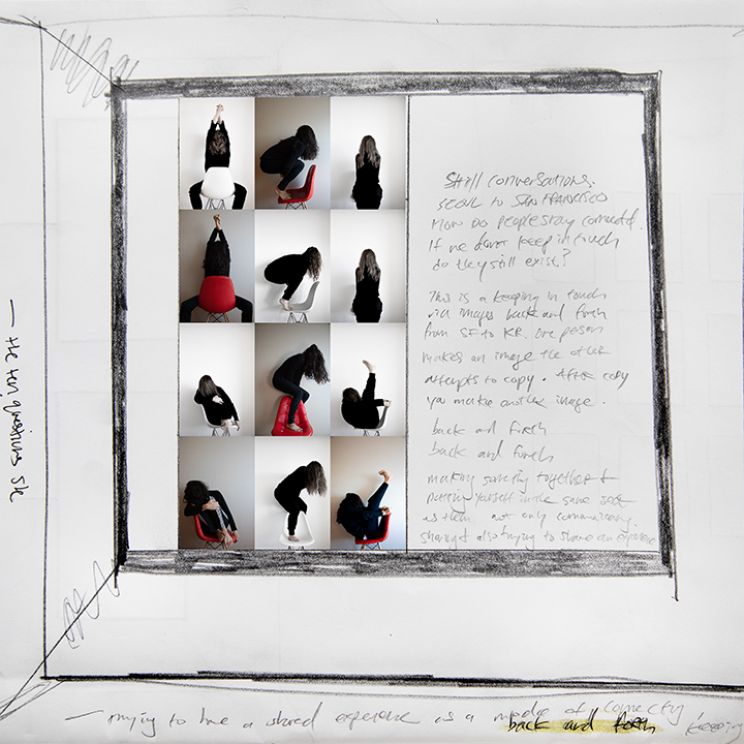 Still Conversations.
SEOUL to SAN FRANCISCO
How Do People stay connected.
If we don't keep in touch
do they still exist?
This is a keeping in touch
via images back and forth
from SF to KR. One person
makes an image the other
attempts to copy. After copy
you make another image.
back and forth
back and forth
making something together &
putting yourself in the same
as them not only communicating.
sharing & also trying to share an experience
— trying to have a shared experience as a mode of
back and forth
keeping